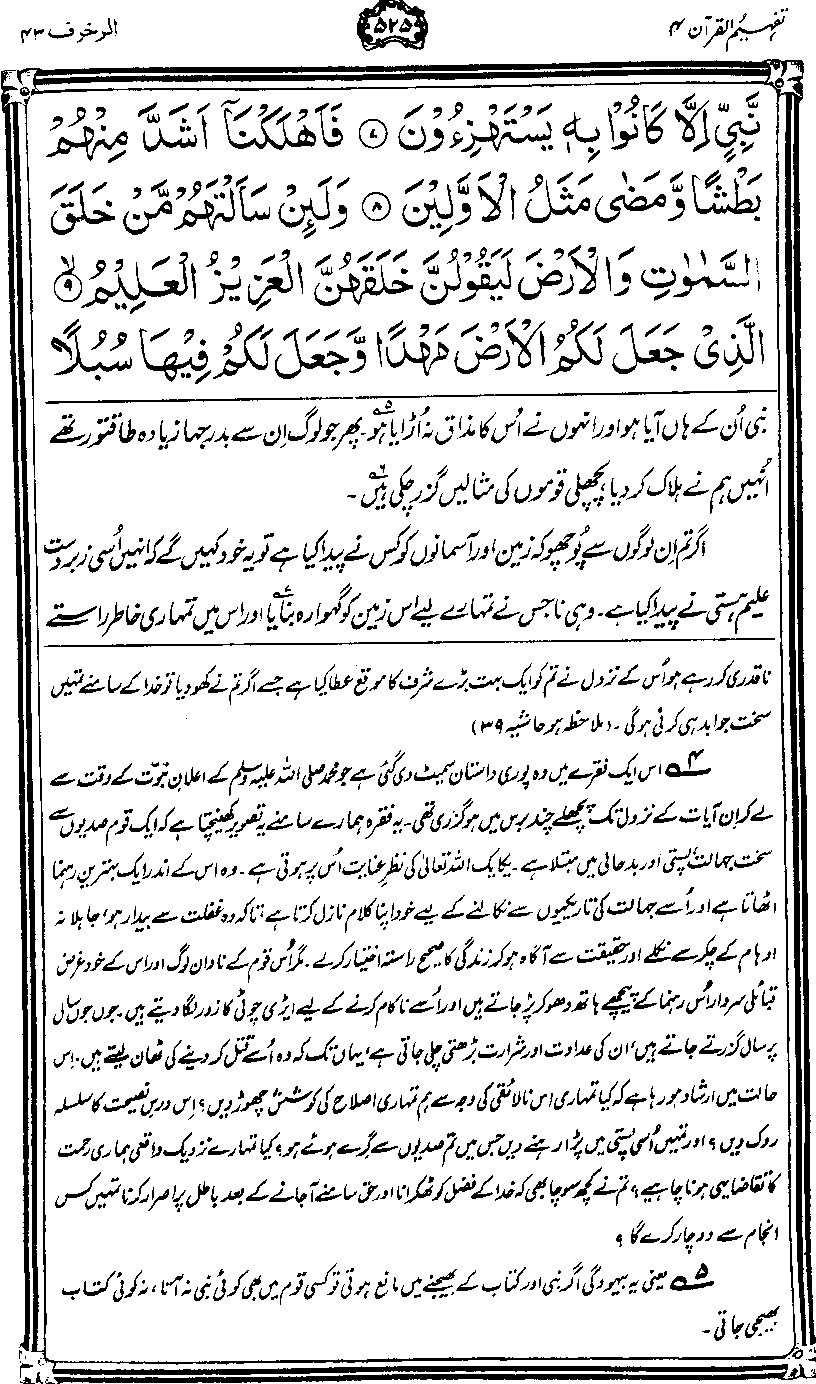 تفہیم القرآن ۴
۵۲۵
الزخرف ۴۳
نَّبِيٍّ اِلَّا كَانُوْا بِهٖ يَسْتَهْزِءُوْنَ ۷ فَاَهْلَكْنَاۤ اَشَدَّ مِنْهُمْ
بَطْشًا وَّمَضٰى مَثَلُ الْاَوَّلِيْنَ ۸ وَلَىِٕنْ سَاَلْتَهُمْ مَّنْ خَلَقَ
السَّمٰوٰتِ وَالْاَرْضَ لَيَقُوْلُنَّ خَلَقَهُنَّ الْعَزِيْزُ الْعَلِيْمُ ۙ۹
الَّذِيْ جَعَلَ لَكُمُ الْاَرْضَ مَهْدًا وَّجَعَلَ لَكُمْ فِيْهَا سُبُلًا
نبی اُن کے ہاں آیا ہو اور انہوں نے اُس کا مذاق نہ اُڑایا ہو۵۔ پھر جو لوگ اِن سے بدرجہا زیادہ طاقتور تھے
اُنہیں ہم نے ہلاک کر دیا، پچھلی قوموں کی مثالیں گزر چکی ہیں۶۔
اگر تم اِن لوگوں سے پُوچھو کہ زمین اور آسمانوں کو کس نے پیدا کیا ہے تو یہ خود کہیں گے کہ انہیں اُسی زبردست
علیم ہستی نے پیدا کیا ہے۔ وہی نا جس نے تمہارے لیے اس زمین کو گہوارہ بنایا۷ اور اس میں تمہاری خاطر راستے
ناقدری کر رہے ہو اُس کے نزول نے تم کو ایک بہت بڑے شرف کا موقع عطا کیا ہے جسے اگر تم نے کھو دیا تو خدا کے سامنے تمہیں
سخت جواب دہی کرنی ہوگی۔ (ملاحظہ ہو حاشیہ ۳۹)
۴ اس ایک فقرے میں وہ پوری داستان سمیٹ دی گئی ہے جو محمد صلی اللہ علیہ وسلم کے اعلانِ نبوّت کے وقت سے
لے کر ان آیات کے نزول تک پچھلے چند برس میں ہو گزری تھی۔ یہ فقرہ ہمارے سامنے یہ تصویر کھینچتا ہے کہ ایک قوم صدیوں سے
سخت جہالت، پستی اور بدحالی میں مبتلا ہے۔ یکایک اللہ تعالیٰ کی نظرِ عنایت اُس پر ہوتی ہے۔ وہ اس کے اندر ایک بہترین رہنما
اٹھاتا ہے اور اُسے جہالت کی تاریکیوں سے نکالنے کے لیے خود اپنا کلام نازل کرتا ہے، تاکہ وہ غفلت سے بیدار ہو، جاہلانہ
اوہام کے چکر سے نکلے اور حقیقت سے آگاہ ہو کر زندگی کا صحیح راستہ اختیار کرے۔ مگر اُس قوم کے نادان لوگ اور اس کے خود غرض
قبائلی سردار اُس رہنما کے پیچھے ہاتھ دھو کر پڑ جاتے ہیں اور اُسے ناکام کرنے کے لیے ایڑی چوٹی کا زور لگا دیتے ہیں۔ جوں جوں سال
پر سال گزرتے جاتے ہیں، ان کی عداوت اور شرارت بڑھتی چلی جاتی ہے، یہاں تک کہ وہ اُسے قتل کر دینے کی ٹھان لیتے ہیں۔ اِس
حالت میں ارشاد ہو رہا ہے کہ کیا تمہاری اس نالائقی کی وجہ سے ہم تمہاری اصلاح کی کوشش چھوڑ دیں؟ اِس درسِ نصیحت کا سلسلہ
روک دیں؟ اور تمہیں اُسی پستی میں پڑا رہنے دیں جس میں تم صدیوں سے گرے ہوئے ہو؟ کیا تمہارے نزدیک واقعی ہماری رحمت
کا تقاضا یہی ہونا چاہیے؟ تم نے کچھ سوچا بھی کہ خدا کے فضل کو ٹھکرانا اور حق سامنے آ جانے کے بعد باطل پر اصرار کرنا تمہیں کس
انجام سے دوچار کرے گا؟
۵ یعنی یہ بیہودگی اگر نبی اور کتاب کے بھیجنے میں مانع ہوتی تو کسی قوم میں بھی کوئی نبی نہ آتا، نہ کوئی کتاب
بھیجی جاتی۔